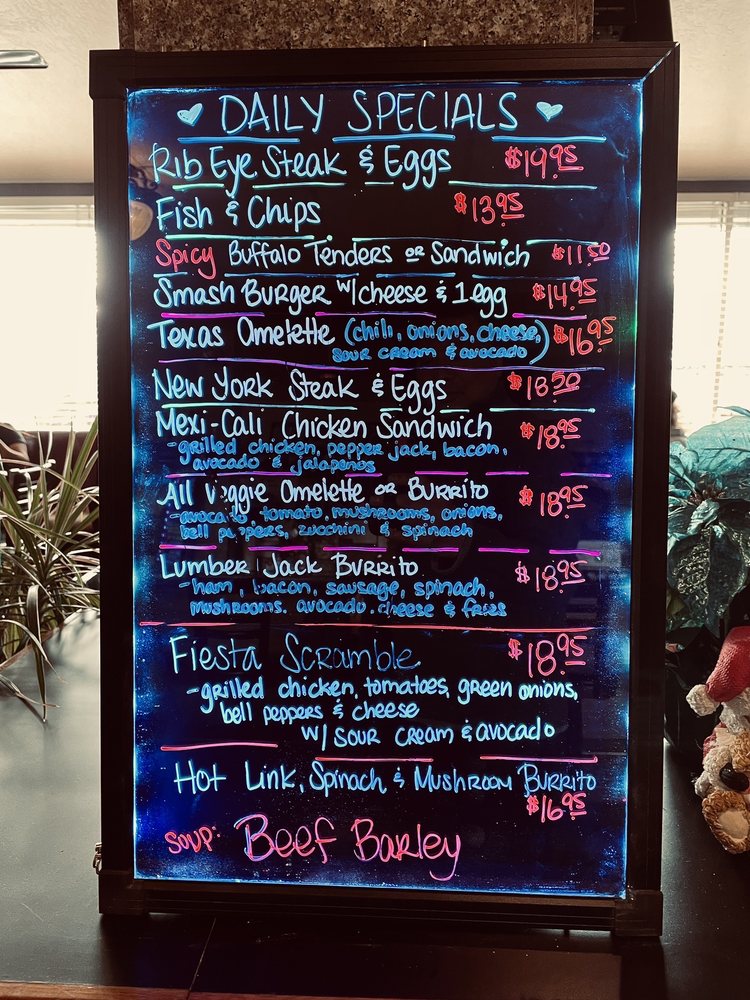 ♥ DAILY SPECIALS ♥
Rib Eye Steak & Eggs $19.95
Fish & Chips $13.95
Spicy Buffalo Tenders or Sandwich $11.50
Smash Burger w/cheese & 1 egg $14.95
Texas Omelette (chili, onions, cheese, $16.95
sour cream & avocado)
New York Steak & Eggs $18.50
Mexi-Cali Chicken Sandwich $18.95
-grilled chicken, pepper jack, bacon,
avocado & jalapenos
All Veggie Omelette or Burrito $18.95
-avocato tomato, mushrooms, onions,
bell peppers, zucchini & spinach
Lumber Jack Burrito $18.95
-ham, bacon, sausage, spinach,
mushrooms. avocado. cheese & fries
Fiesta Scramble $18.95
-grilled chicken, tomatoes, green onions,
bell peppers & cheese
w/ sour cream & avocado
Hot Link, Spinach & Mushroom Burrito
$16.95
soup: Beef Barley